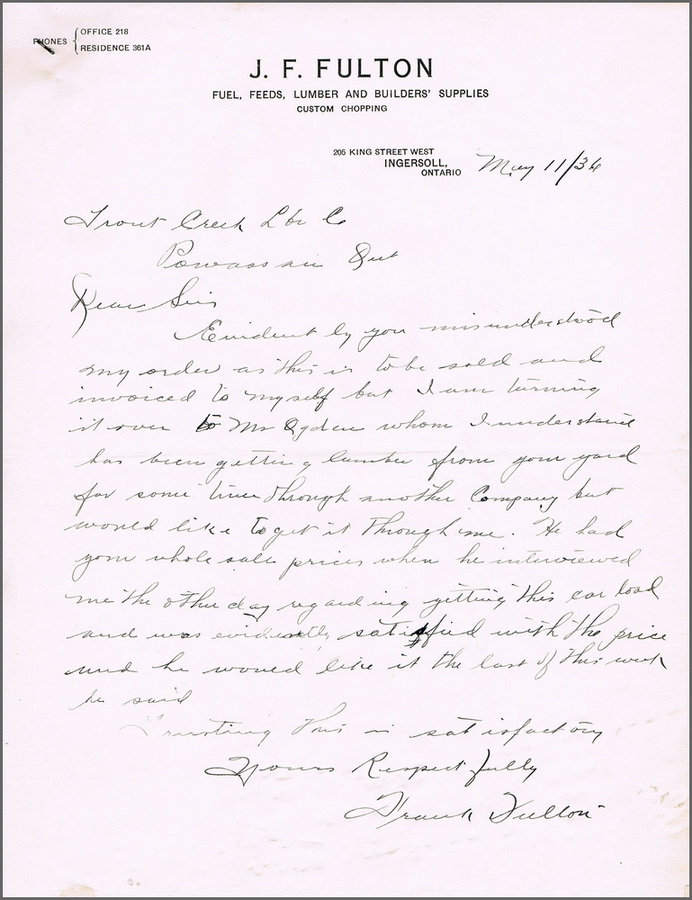 PHONES { OFFICE 218
RESIDENCE 361A
J. F. FULTON
FUEL, FEEDS, LUMBER AND BUILDERS' SUPPLIES
CUSTOM CHOPPING
205 KING STREET WEST
INGERSOLL,
ONTARIO
May 11/36
Trout Creek Lbr Co
Powassan Ont
Dear Sirs
Evidently you misunderstood
my order as this is to be sold and
invoiced to myself but I am turning
it over to Mr Ogden whom I understand
has been getting lumber from your yard
for some time through another Company but
would like to get it through me. He had
your wholesale prices when he interviewed
me the other day regarding getting this car load
and was evidently satisfied with the price
and he would like it the last of this week
he said
Trusting this is satisfactory
Yours Respectfully
Frank Fulton